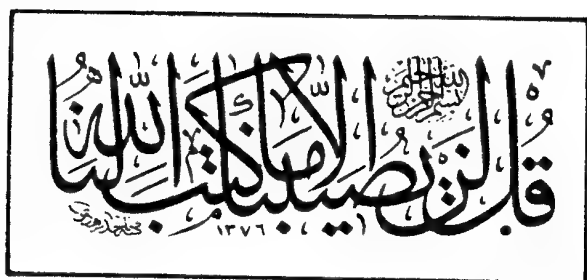 بسم الله الرحمن الرحيم
قل لن يصيبنا إلا ما كتب الله لنا
١٣٧٦